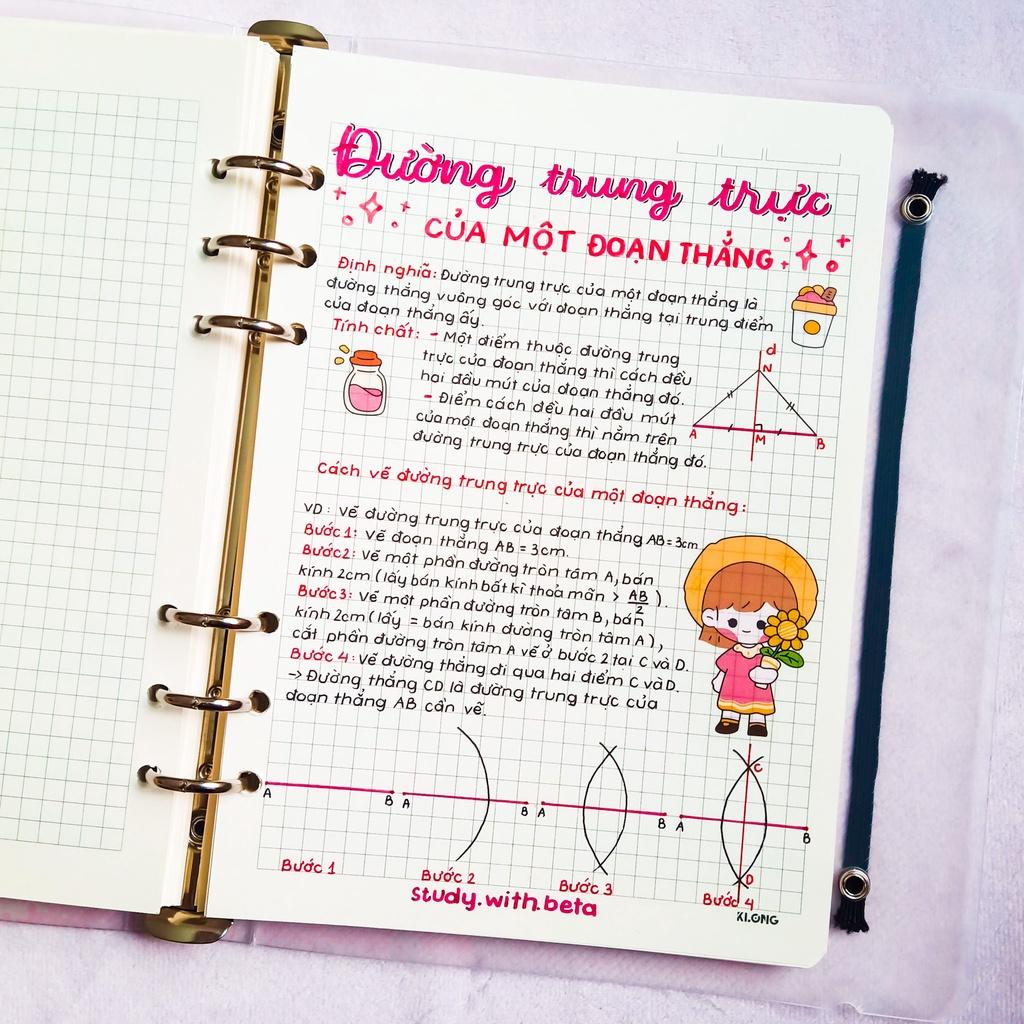 Đường trung trực
CỦA MỘT ĐOẠN THẲNG
Định nghĩa: Đường trung trực của một đoạn thẳng là
đường thẳng vuông góc với đoạn thẳng tại trung điểm
của đoạn thẳng ấy.
Tính chất: - Một điểm thuộc đường trung
trực của đoạn thẳng thì cách đều
hai đầu mút của đoạn thẳng đó.
- Điểm cách đều hai đầu mút
của một đoạn thẳng thì nằm trên
đường trung trực của đoạn thẳng đó.
d
N
A
M
B
Cách vẽ đường trung trực của một đoạn thẳng:
VD: Vẽ đường trung trực của đoạn thẳng AB = 3cm
Bước 1: Vẽ đoạn thẳng AB = 3cm.
Bước 2: Vẽ một phần đường tròn tâm A, bán
kính 2cm (lấy bán kính bất kì thoả mãn > AB/2).
Bước 3: Vẽ một phần đường tròn tâm B, bán
kính 2cm (lấy = bán kính đường tròn tâm A),
cắt phần đường tròn tâm A vẽ ở bước 2 tại C và D.
Bước 4: Vẽ đường thẳng đi qua hai điểm C và D.
→ Đường thẳng CD là đường trung trực của
đoạn thẳng AB cần vẽ.
A B A B A B A B
C
D
Bước 1 Bước 2 Bước 3 Bước 4
study.with.beta
KLONG